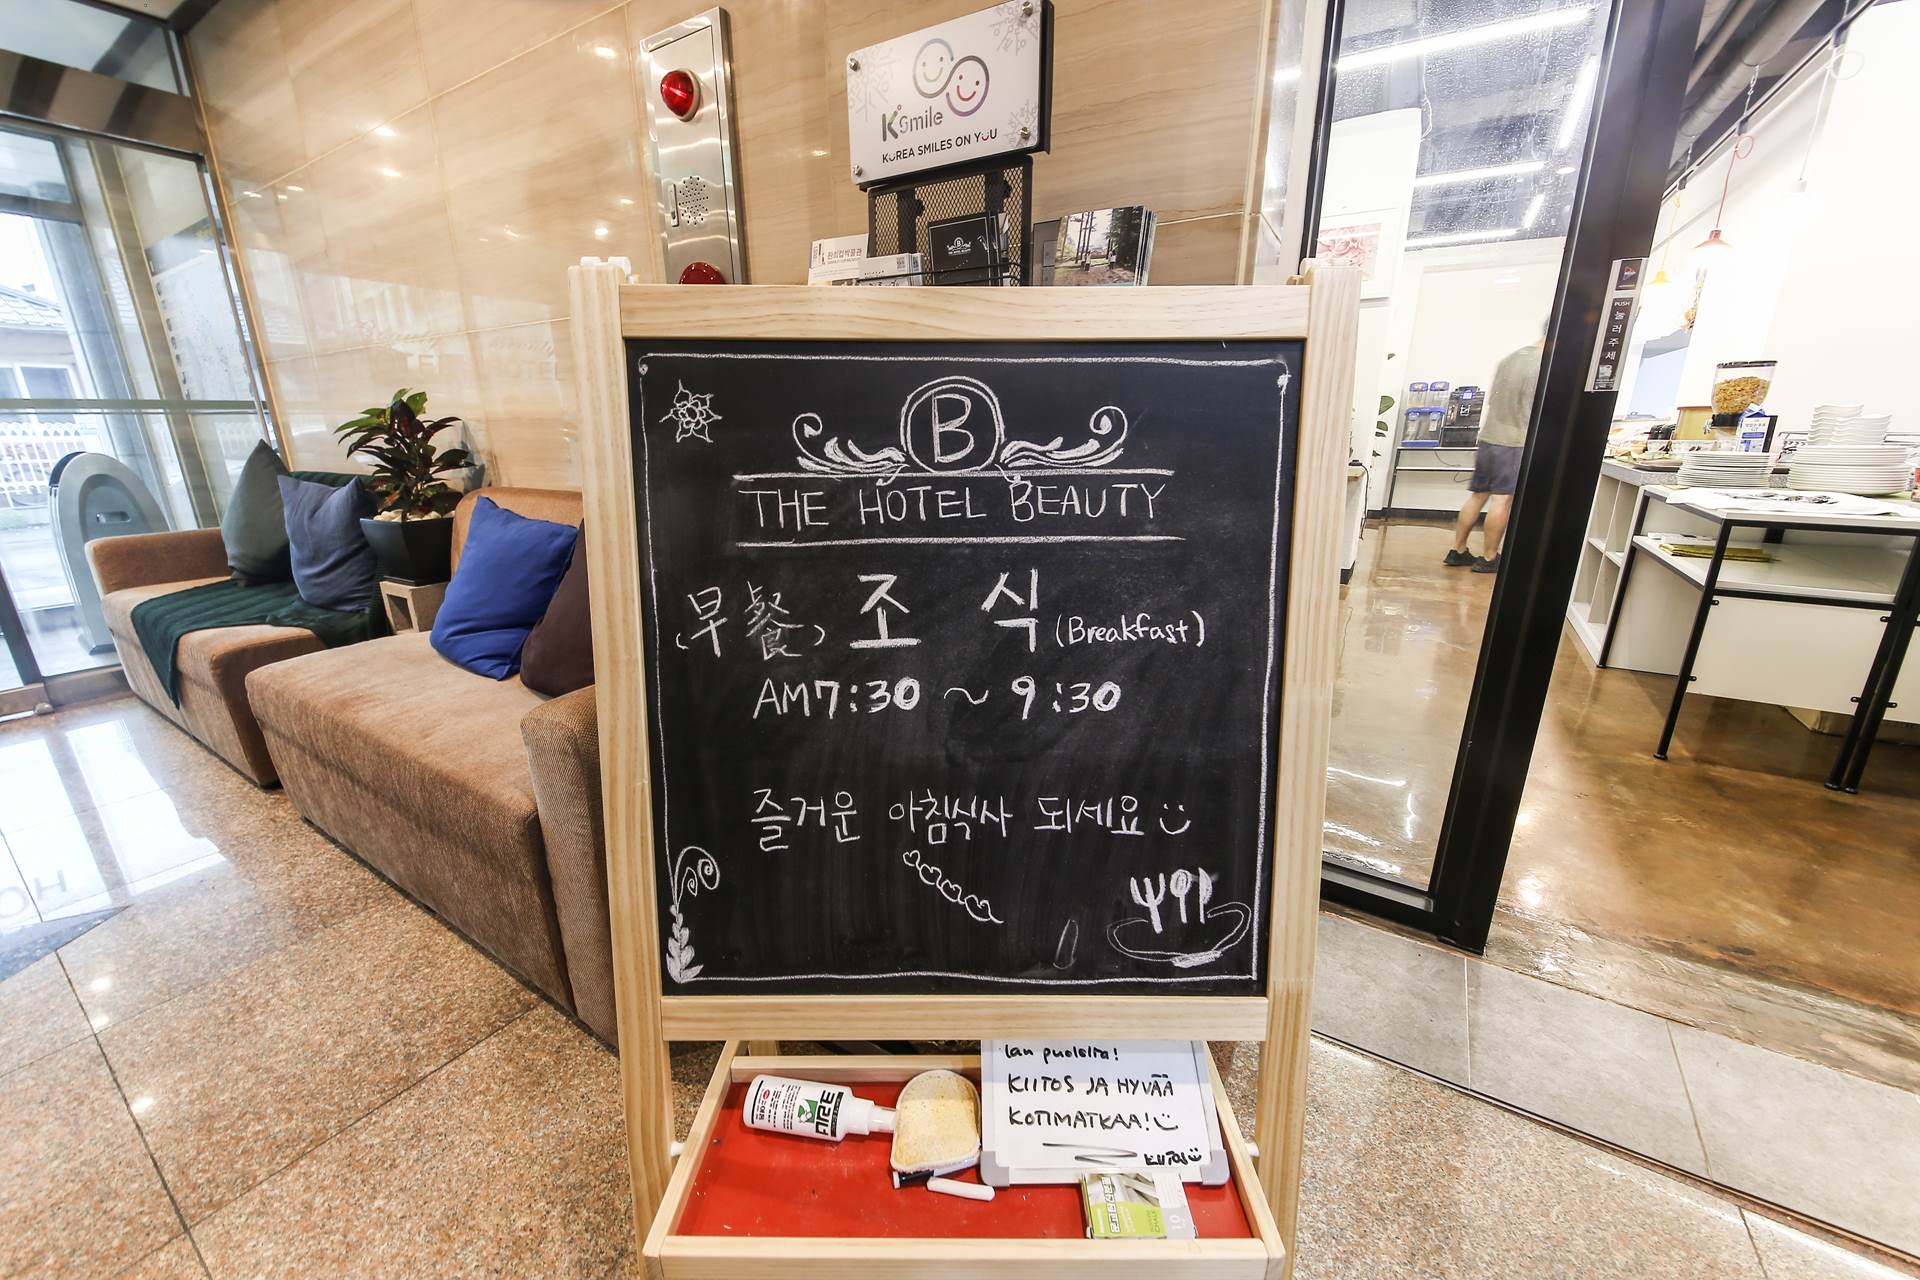 K Smile
KOREA SMILES ON YOU
B
THE HOTEL BEAUTY
(早餐) 조 식 (Breakfast)
AM 7:30 ~ 9:30
즐거운 아침식사 되세요
PUSH
눌러주세
KIITOS JA HYVÄÄ
KOTIMATKAA!
KIITOS
크리너
CHALK
10